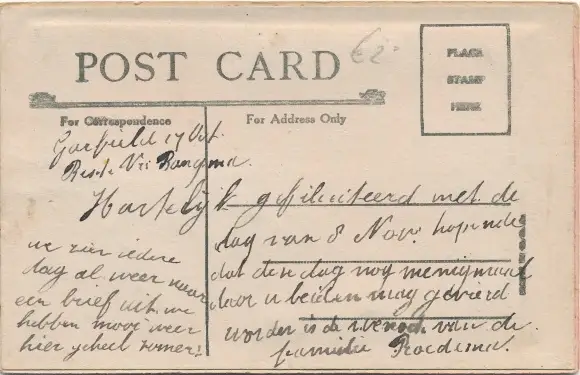 POST CARD
€2-
PLACE
STAMP
HERE
For Correspondence
For Address Only
Garfield 17 Oct.
Beste Vri Bangma.
Hartelijk gefiliciteerd met de
dag van 8 Nov. hopende
dat deze dag nog menigmaal
door u beiden mag gevierd
worden is de wensch van de
familie Roedema.
we zien iedere
dag al weer naar
een brief uit. we
hebben mooi weer
hier geheel zomer!